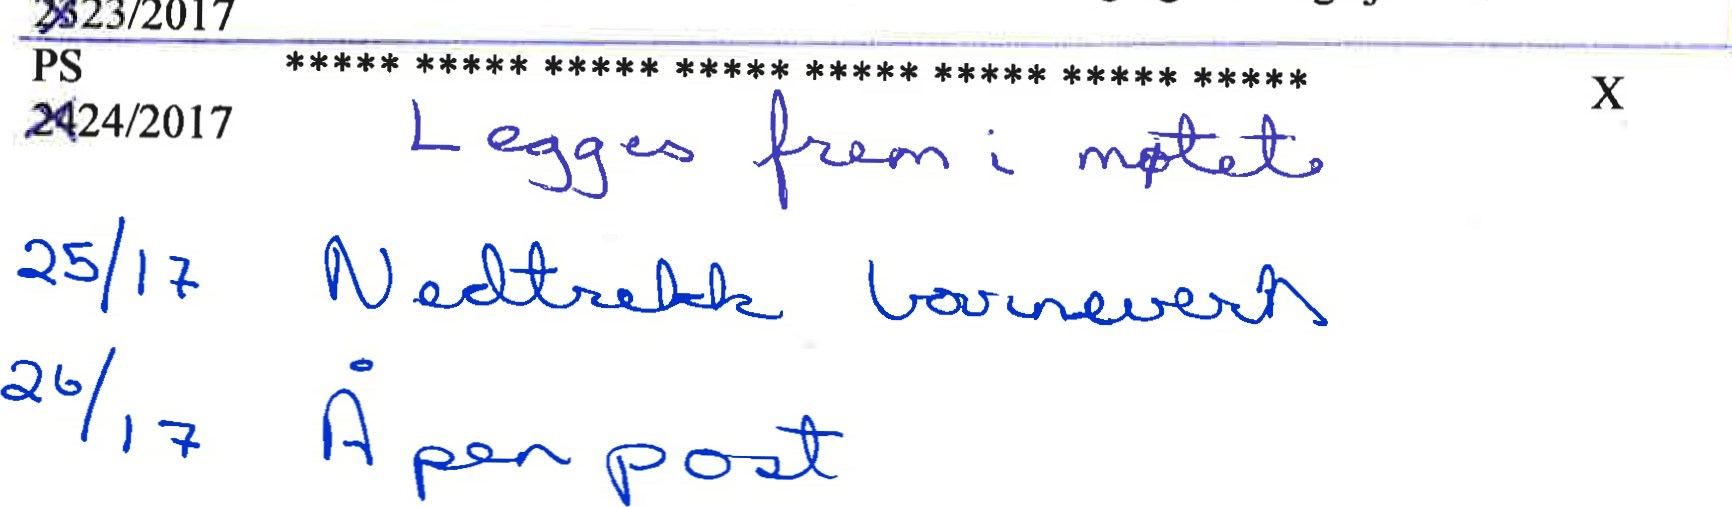 2323/2017
PS ***** ***** ***** ***** ***** ***** ***** ***** X
2424/2017 Legges frem i møtet
25/17 Nedtrekk
26/17 Åpen post